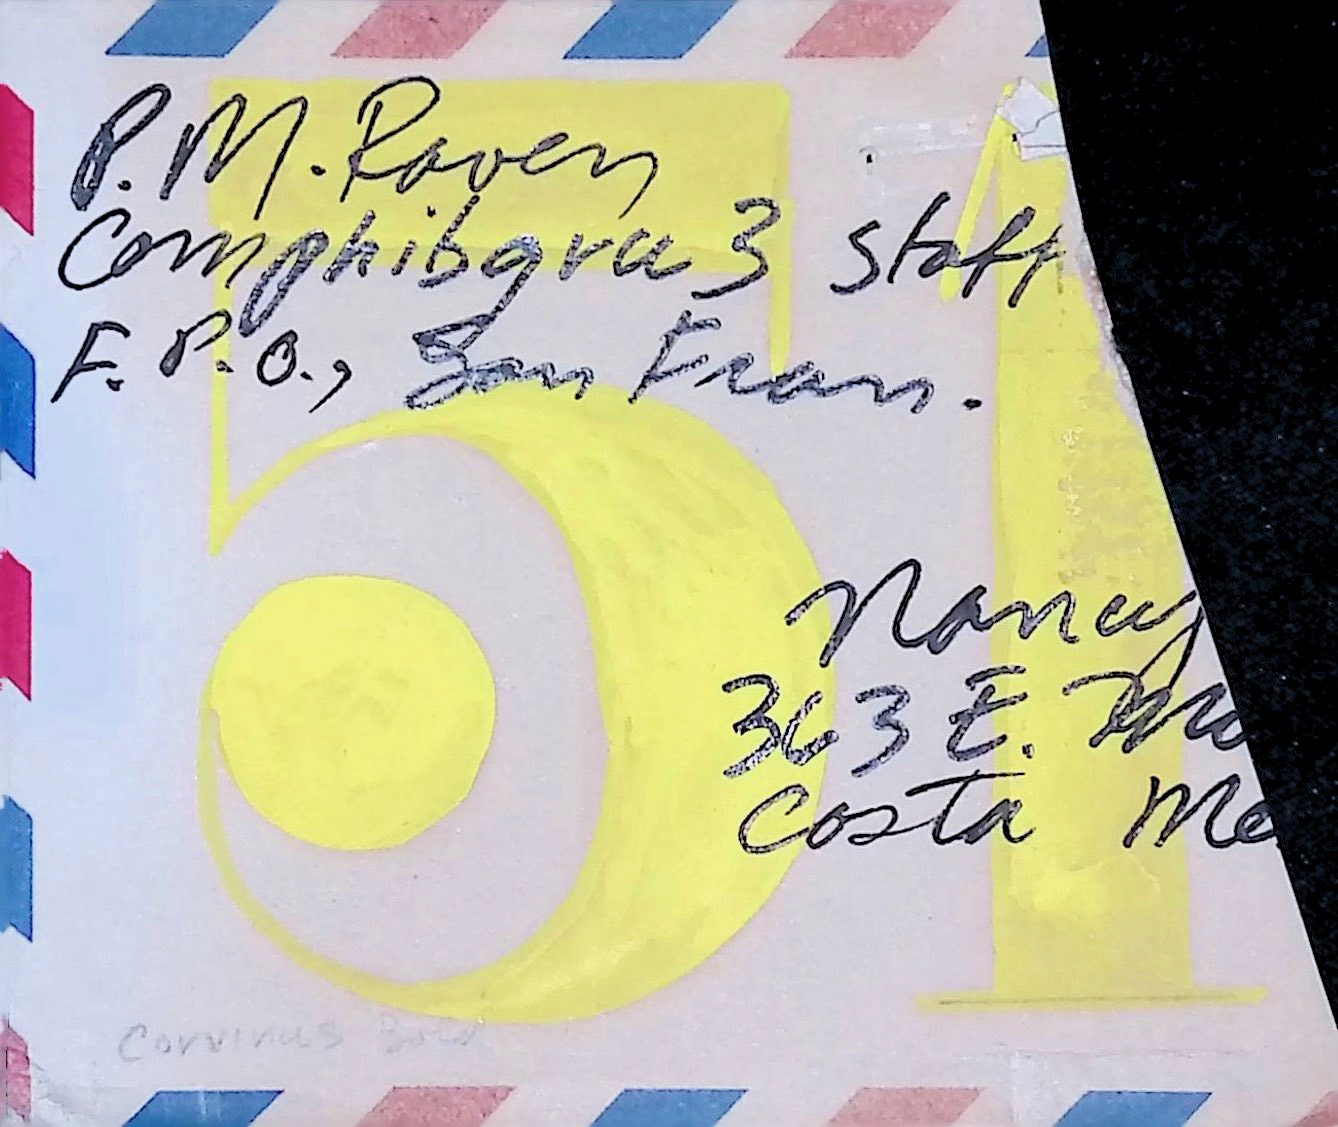 P.M. Raven
Comphibgru 3 Staff
F.P.O., San Fran.
51
Nancy
363 E.
Costa Me
Corvinus Bold